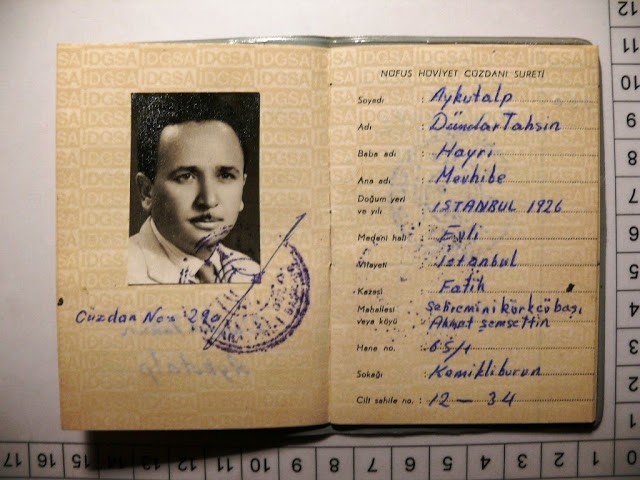 Cüzdan No: 28a
NÜFUS HÜVİYET CÜZDANI SURETİ
Soyadı : Aykutalp
Adı : Dündar Tahsin
Baba adı : Hayri
Ana adı : Mevhibe
Doğum yeri
ve yılı : İSTANBUL 1926
Medeni hali : Evli
Vilayeti : İstanbul
Kazası : Fatih
Mahallesi Şehremini körkcübaşı
veya köyü : Ahmet şemsettin
Hane no. : 65/1
Sokağı : Kemikliburun
Cilt sahife no. : 12 — 34
IDGSA IDGSA IDGSA
12
11
10
9
8
7
6
5
4
3
2
1
17 16 15 14 13 12 11 10 9 8 7 6 5 4 3 2 1 0